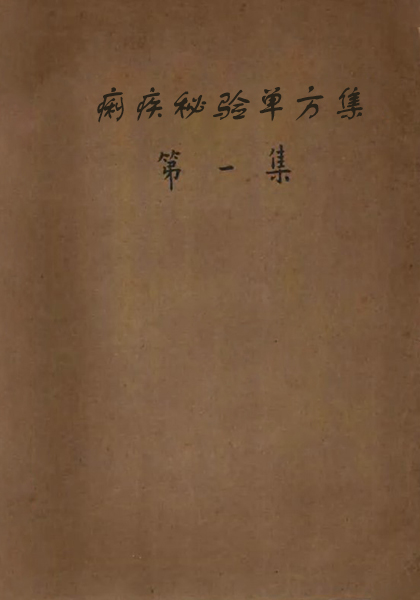 痢疾秘验单方集
第一集